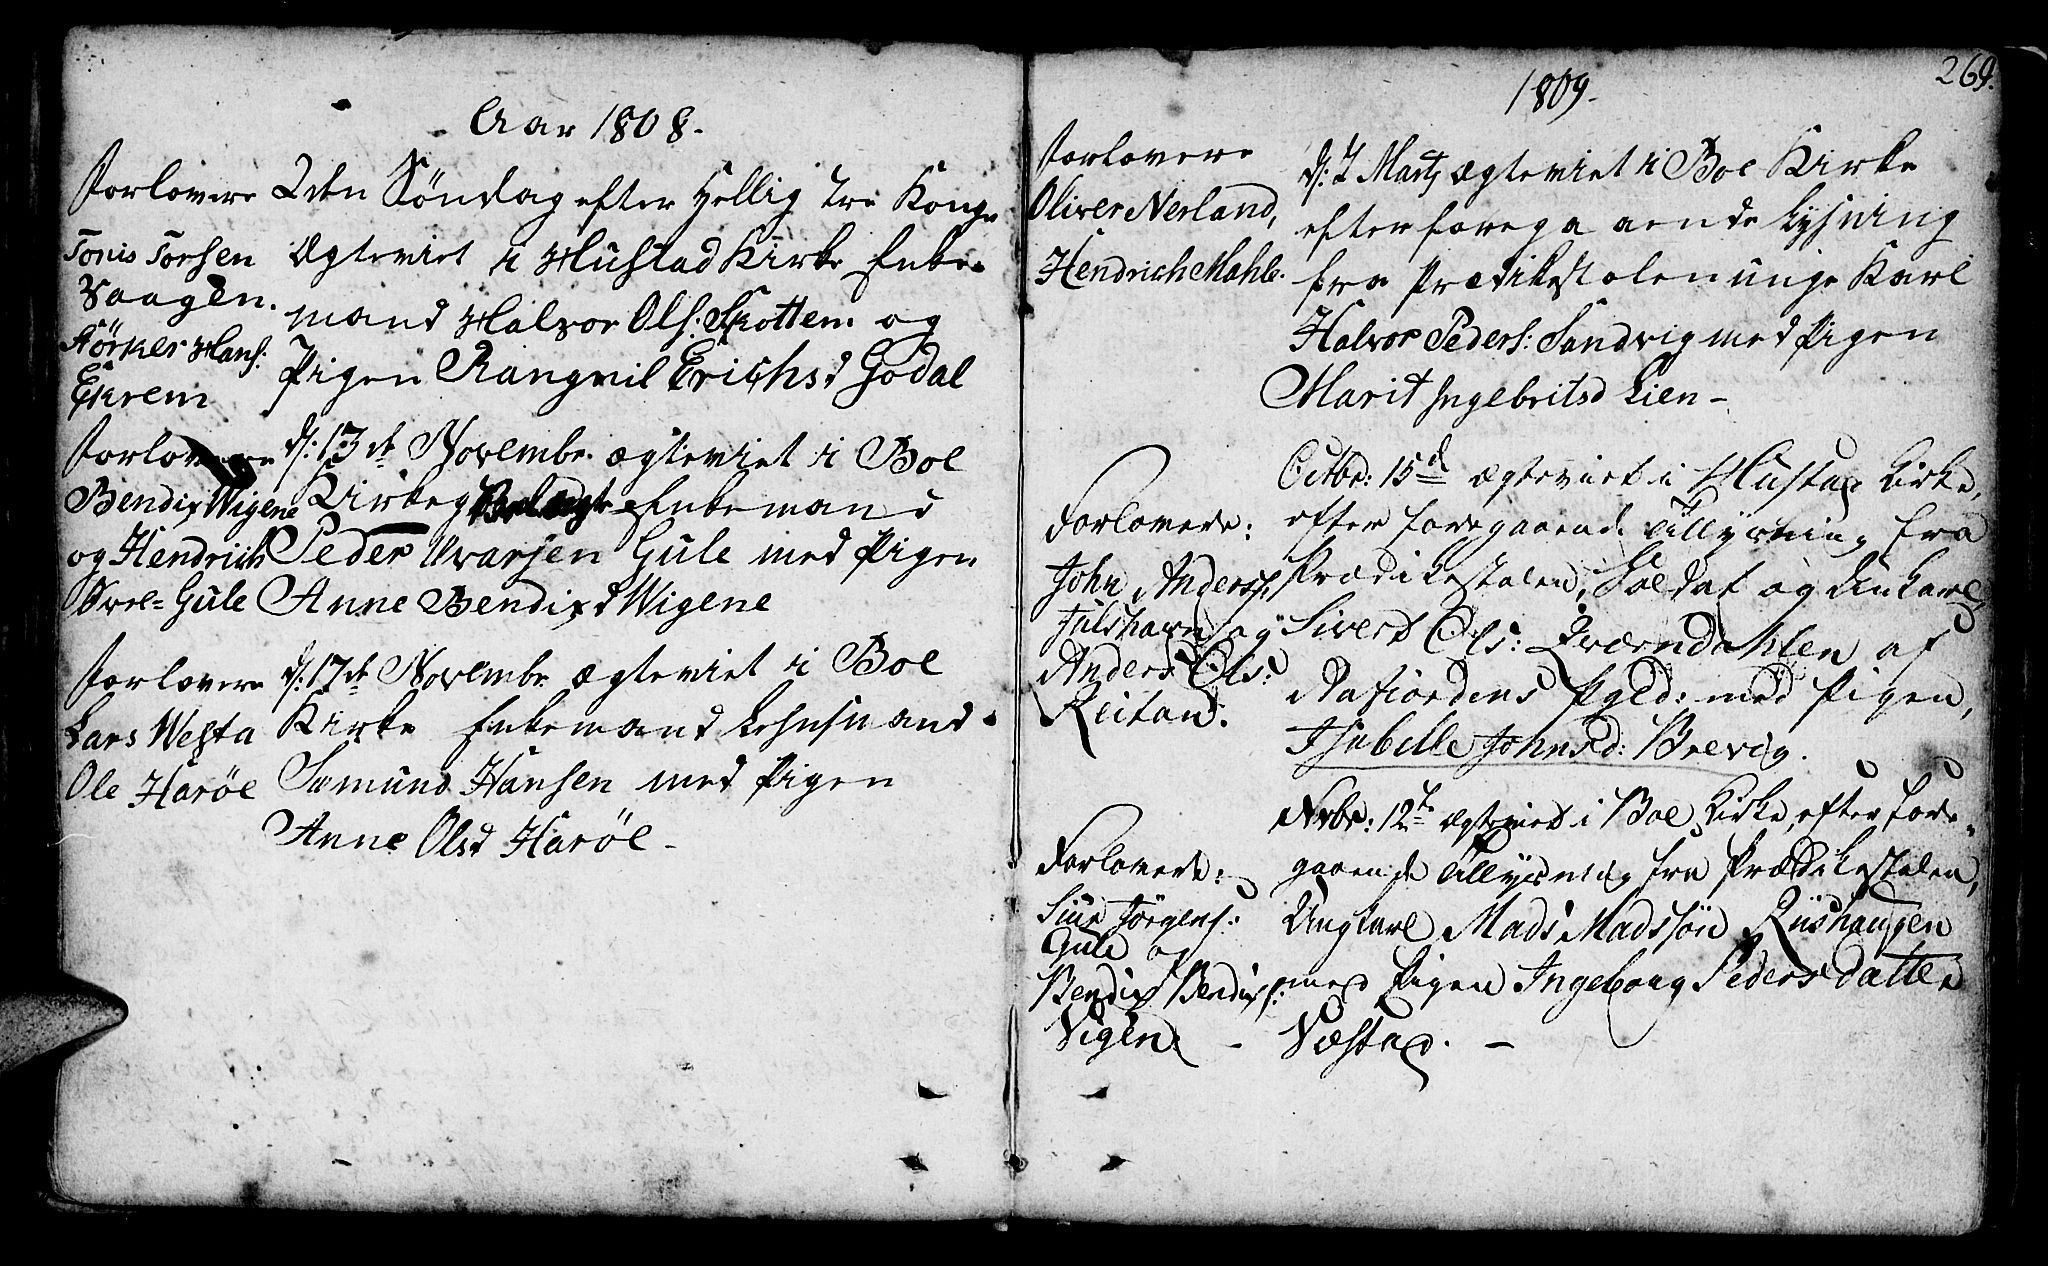 Aar 1808.
Forlovere
Tonis Torsen
Vaagen.
Störker Hans:
Ekrem
2den Söndag efter Hellig Tre Konge
Ægteviet i Hustad Kirke Enke-
mand Halvor Ols: Skotten og
Pigen Rangvil Erichsd Godal
Forlovere
Bendix Wigene
og Hendrich
Gule
d: 13de Novembr. ægteviet i Boe
Kirke Enkemand
Peder Ivarsen Gule med Pigen
Anne Bendixd Wigene
Forlovere
Lars Westa
Ole Harøe
d: 17de Novembr ægteviet i Boe
Kirke Enkemand Lehnsmand
Samund Hansen med Pigen
Anne Olsd Harøe -
269.
1809.
Forlovere
Oliver Nerland,
Hendrich Mahle.
d: 7 Marty ægteviet i Boe Kirke
efter forega aende Lysning
fra Prædikestolen unge Karl
Halvor Peders: Sandvig med Pigen
Marit Ingebritsd Lien -
Forlovere:
John Anderss:
Julshavn og
Anders Ols:
Reitan.
Octbr: 15d ægteviet i Hustad Kirke,
efter foregaaende Tillysning fra
Prædikestolen, Soldat og Unkarl,
Sivert Ols: Qværndahlen af
Aafiordens Pgld: med Pigen,
Isabelle Johnsd: Brevig.
Forlovere:
Siur Jörgens:
Gule og
Bendix Bendixs:
Vigen. -
Nvbr: 12te ægteviet i Boe Kirke, efter fore-
gaaende Tillysning fra Prædikestolen,
Ungkarl Mads Madssön Riishaugen
med Pigen Ingeborg Pedersdatter
Væstad. -